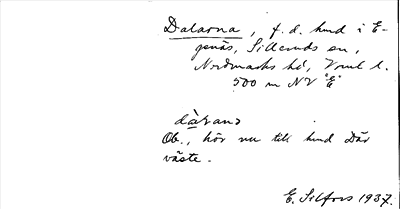 Dalarna, f. d. hmd i E-
genäs, Silleruds sn,
Nordmarks hd, Vrml l.
500 m NV "E"
dàrans
Ob., hör nu till hmd Där
väste.
E. Silfors 1937.